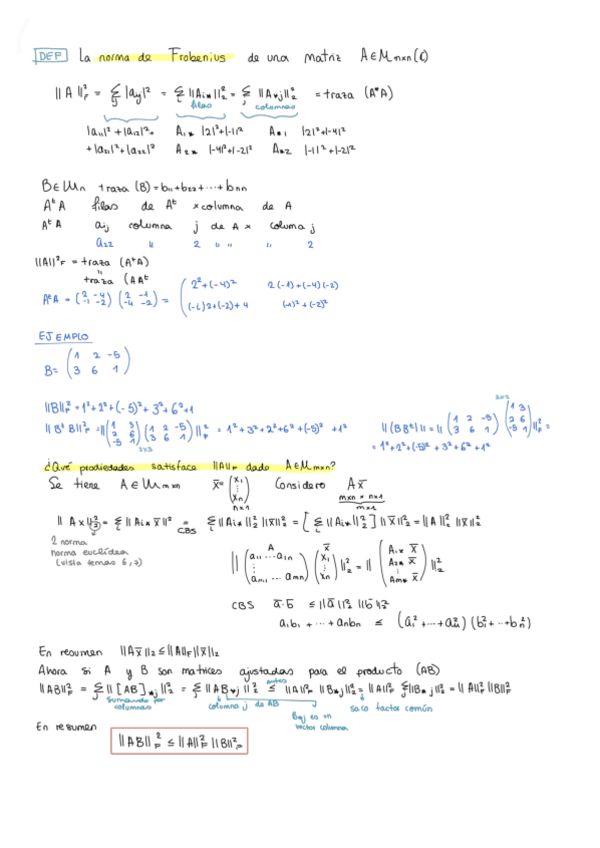 DEF La norma de Frobenius de una matriz A∈M_{m×n}(ℂ)
||A||²_F = Σ_{ij} |a_{ij}|² = Σ_i ||A_{i*}||²_2 = Σ_j ||A_{*j}||²_2 = traza (A*A)
filas columnas
|a₁₁|²+|a₁₂|²+ A₁* |2|²+|-1|² A*₁ |2|²+|-4|²
+|a₂₁|²+|a₂₂|² A₂* |-4|²+|-2|² A*₂ |-1|²+|-2|²
B∈M_n traza (B) = b₁₁+b₂₂+⋯+b_{nn}
AᵗA filas de Aᵗ × columna de A
AᵗA a_{ij} columna j de A × columa j
a₂₂ " 2 " " " 2
||A||²_F = traza (AᵗA)
"
traza (AAᵗ
AᵗA = (2 -4; -1 -2) (2 -1; -4 -2) = (2²+(-4)² 2(-1)+(-4)(-2)
(-1)2+(-2)+4 (-1)²+(-2)²)
EJEMPLO
B= (1 2 -5
3 6 1)
||B||²_F = 1²+2²+(-5)²+3²+6²+1
||BᵗB||²_F = ||(1 3; 2 6; -5 1) (1 2 -5; 3 6 1)||²_F = 1²+3²+2²+6²+(-5)² +1²
||(BBᵗ)|| = ||(1 2 -5; 3 6 1) (1 3; 2 6; -5 1)||²_F =
= 1²+2²+(-5)²+3²+6²+1²
¿Qué prodiedades satisface ||A||_F dado A∈M_{m×n}?
Se tiene A∈M_{m×n} x̄=(x₁ ⋮ x_n) n×1 Considero Ax̄
m×n n×1
m×1
||Ax||²_2 = Σ_i ||A_{i*} x̄||² ≤ CBS Σ_i ||A_{i*}||²_2 ||x̄||²_2 = [Σ_i ||A_{i*}||²_2] ||x̄||²_2 = ||A||²_F ||x̄||²_2
2 norma
norma euclídea
(vista temas 6,7)
A x̄
||(a₁₁ … a₁ₙ; ⋮; a_{m1} … a_{mn}) (x₁; ⋮; x_n)||²_2 = ||(A₁* x̄; A₂* x̄; ⋮; A_{m*} x̄)||²_2
CBS ā·b̄ ≤ ||ā||²_2 ||b̄||²_2
a₁b₁ + ⋯ + aₙbₙ ≤ (a₁²+⋯+aₙ²) (b₁²+⋯+bₙ²)
En resumen ||Ax̄||₂ ≤ ||A||_F ||x̄||₂
Ahora si A y B son matrices ajustadas para el producto (AB)
||AB||²_F = Σ_j ||[AB]_{*j}||²_2 = Σ_j ||AB_{*j}||²_2 ≤ ||A||²_F ||B_{*j}||²_2 = ||A||²_F Σ||B_{*j}||²_2 = ||A||²_F ||B||²_F
antes
sumando por columnas
columna j de AB
saco factor común
B_{*j} es un
vector columna
En resumen ||AB||²_F ≤ ||A||²_F ||B||²_F